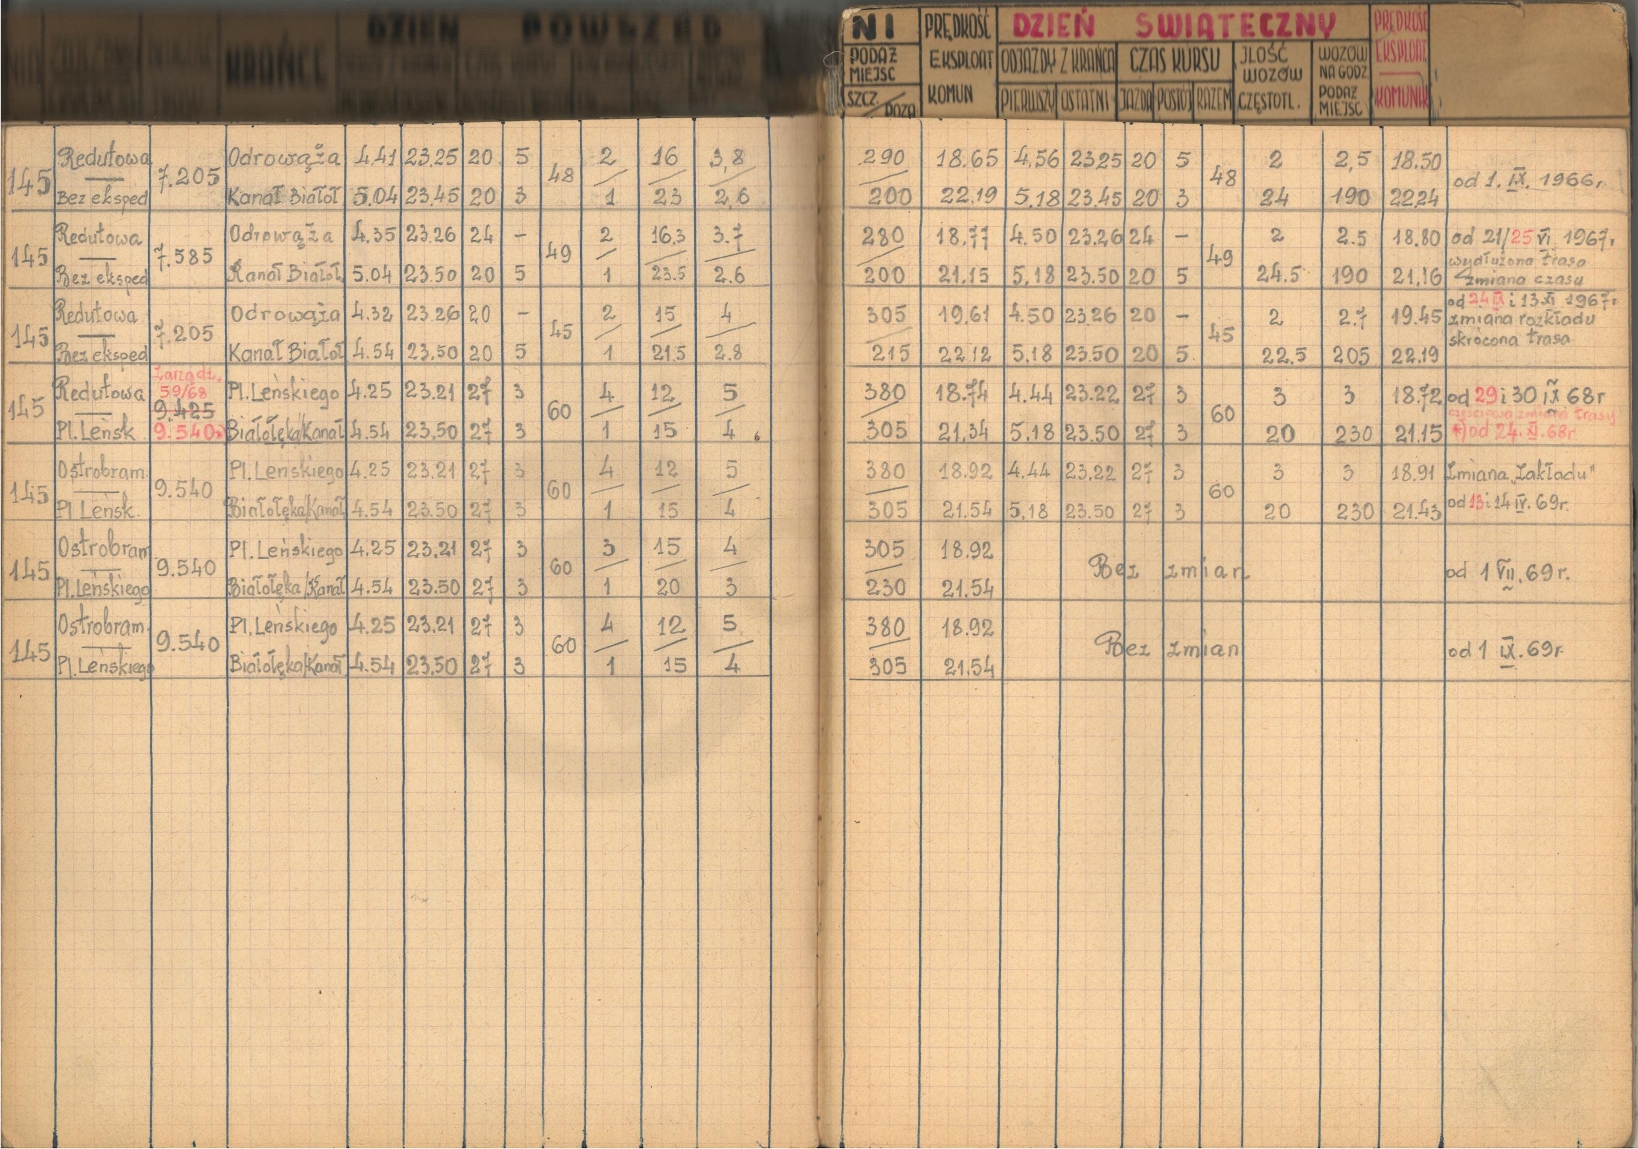 DZIEŃ POWSZED
KRAŃCE
NI PRĘDKOŚĆ DZIEŃ SWIĄTECZNY PRĘDKOŚĆ
PODAŻ MIEJSC EKSPLOAT ODJAZDY Z KRAŃCA CZAS KURSU JLOŚĆ WOZÓW WOZÓW NA GODZ EKSPLOAT.
SZCZ. POZA KOMUN PIERWSZY OSTATNI JAZDA POSTÓJ RAZEM CZĘSTOTL. PODAŻ MIEJSC KOMUNIK
145 Redutowa 7.205 Odrowąża 4.41 23.25 20 5 48 2 16 3,8 290 18.65 4.56 23.25 20 5 48 2 2,5 18.50 od 1. IX. 1966r.
Bez eksped Kanał Białoł 5.04 23.45 20 3 1 23 2,6 200 22.19 5.18 23.45 20 3 24 190 22.24
145 Redutowa 7.585 Odrowąża 4.35 23.26 24 - 49 2 16,3 3.7 280 18.77 4.50 23.26 24 - 49 2 2.5 18.80 od 21/25 VI 1967r.
wydłużona trasa
Bez eksped Kanał Białoł. 5.04 23.50 20 5 1 23.5 2.6 200 21.15 5.18 23.50 20 5 24.5 190 21,16 zmiana czasu
145 Redutowa 7.205 Odrowąża 4.32 23.26 20 - 45 2 15 4 305 19.61 4.50 23.26 20 - 45 2 2.7 19.45 od 24 IX i 13 XI 1967r.
zmiana rozkładu
skrócona trasa
Bez eksped Kanał Białoł 4.54 23.50 20 5 1 21.5 2.8 215 22.12 5.18 23.50 20 5 22.5 205 22.19
Zarządz.
59/68
145 Redutowa 9.425 Pl. Leńskiego 4.25 23.21 27 3 60 4 12 5 380 18.74 4.44 23.22 27 3 60 3 3 18.72 od 29 i 30 IX 68r
częściowa zmiana trasy
Pl. Leńsk 9.540 Białołęka/Kanał 4.54 23.50 27 3 1 15 4 305 21.34 5.18 23.50 27 3 20 230 21.15 *) od 24. XI. 68r
145 Ostrobram. 9.540 Pl. Leńskiego 4.25 23.21 27 3 60 4 12 5 380 18.92 4.44 23.22 27 3 60 3 3 18.91 Zmiana „Zakładu"
Pl Leńsk. Białołęka/Kanał 4.54 23.50 27 3 1 15 4 305 21.54 5.18 23.50 27 3 20 230 21.43 od 13 i 14 IV. 69r.
145 Ostrobram 9.540 Pl. Leńskiego 4.25 23.21 27 3 60 3 15 4 305 18.92 Bez zmian od 1 VII. 69r.
Pl. Leńskiego Białołęka/Kanał 4.54 23.50 27 3 1 20 3 230 21.54
145 Ostrobram. 9.540 Pl. Leńskiego 4.25 23.21 27 3 60 4 12 5 380 18.92 Bez zmian od 1 IX. 69r
Pl. Leńskiego Białołęka/Kanał 4.54 23.50 27 3 1 15 4 305 21.54